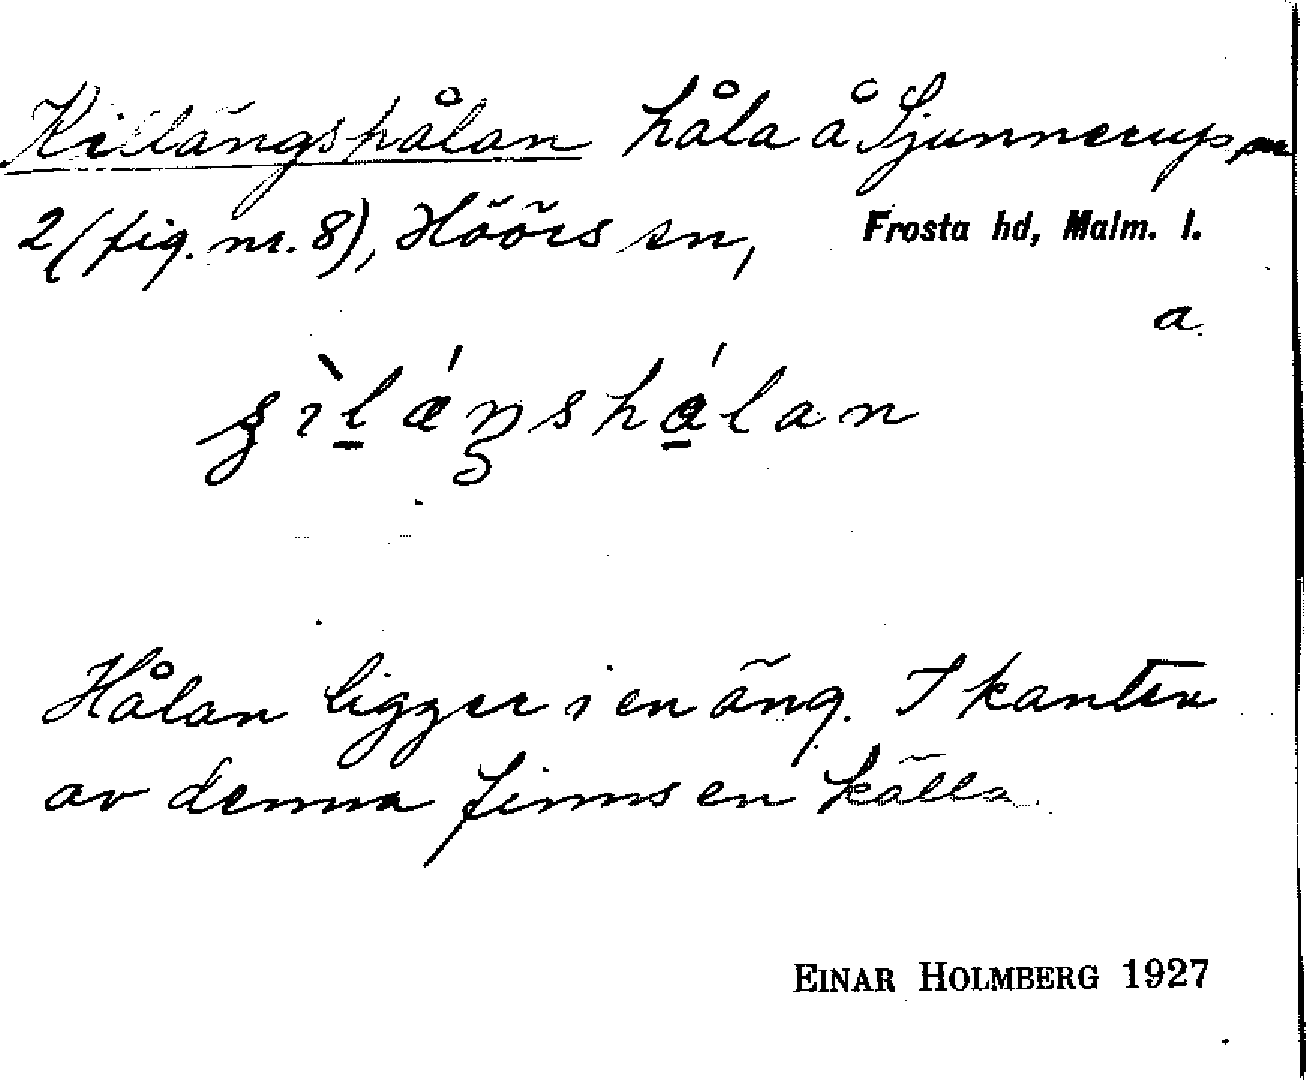 Killängshålan håla å Sjunnerup nr
2 (fig. nr. 8), Höörs sn, Frosta hd, Malm. l.
a
Hålan ligger i en äng. I kanten
av denna finns en källa.
EINAR HOLMBERG 1927